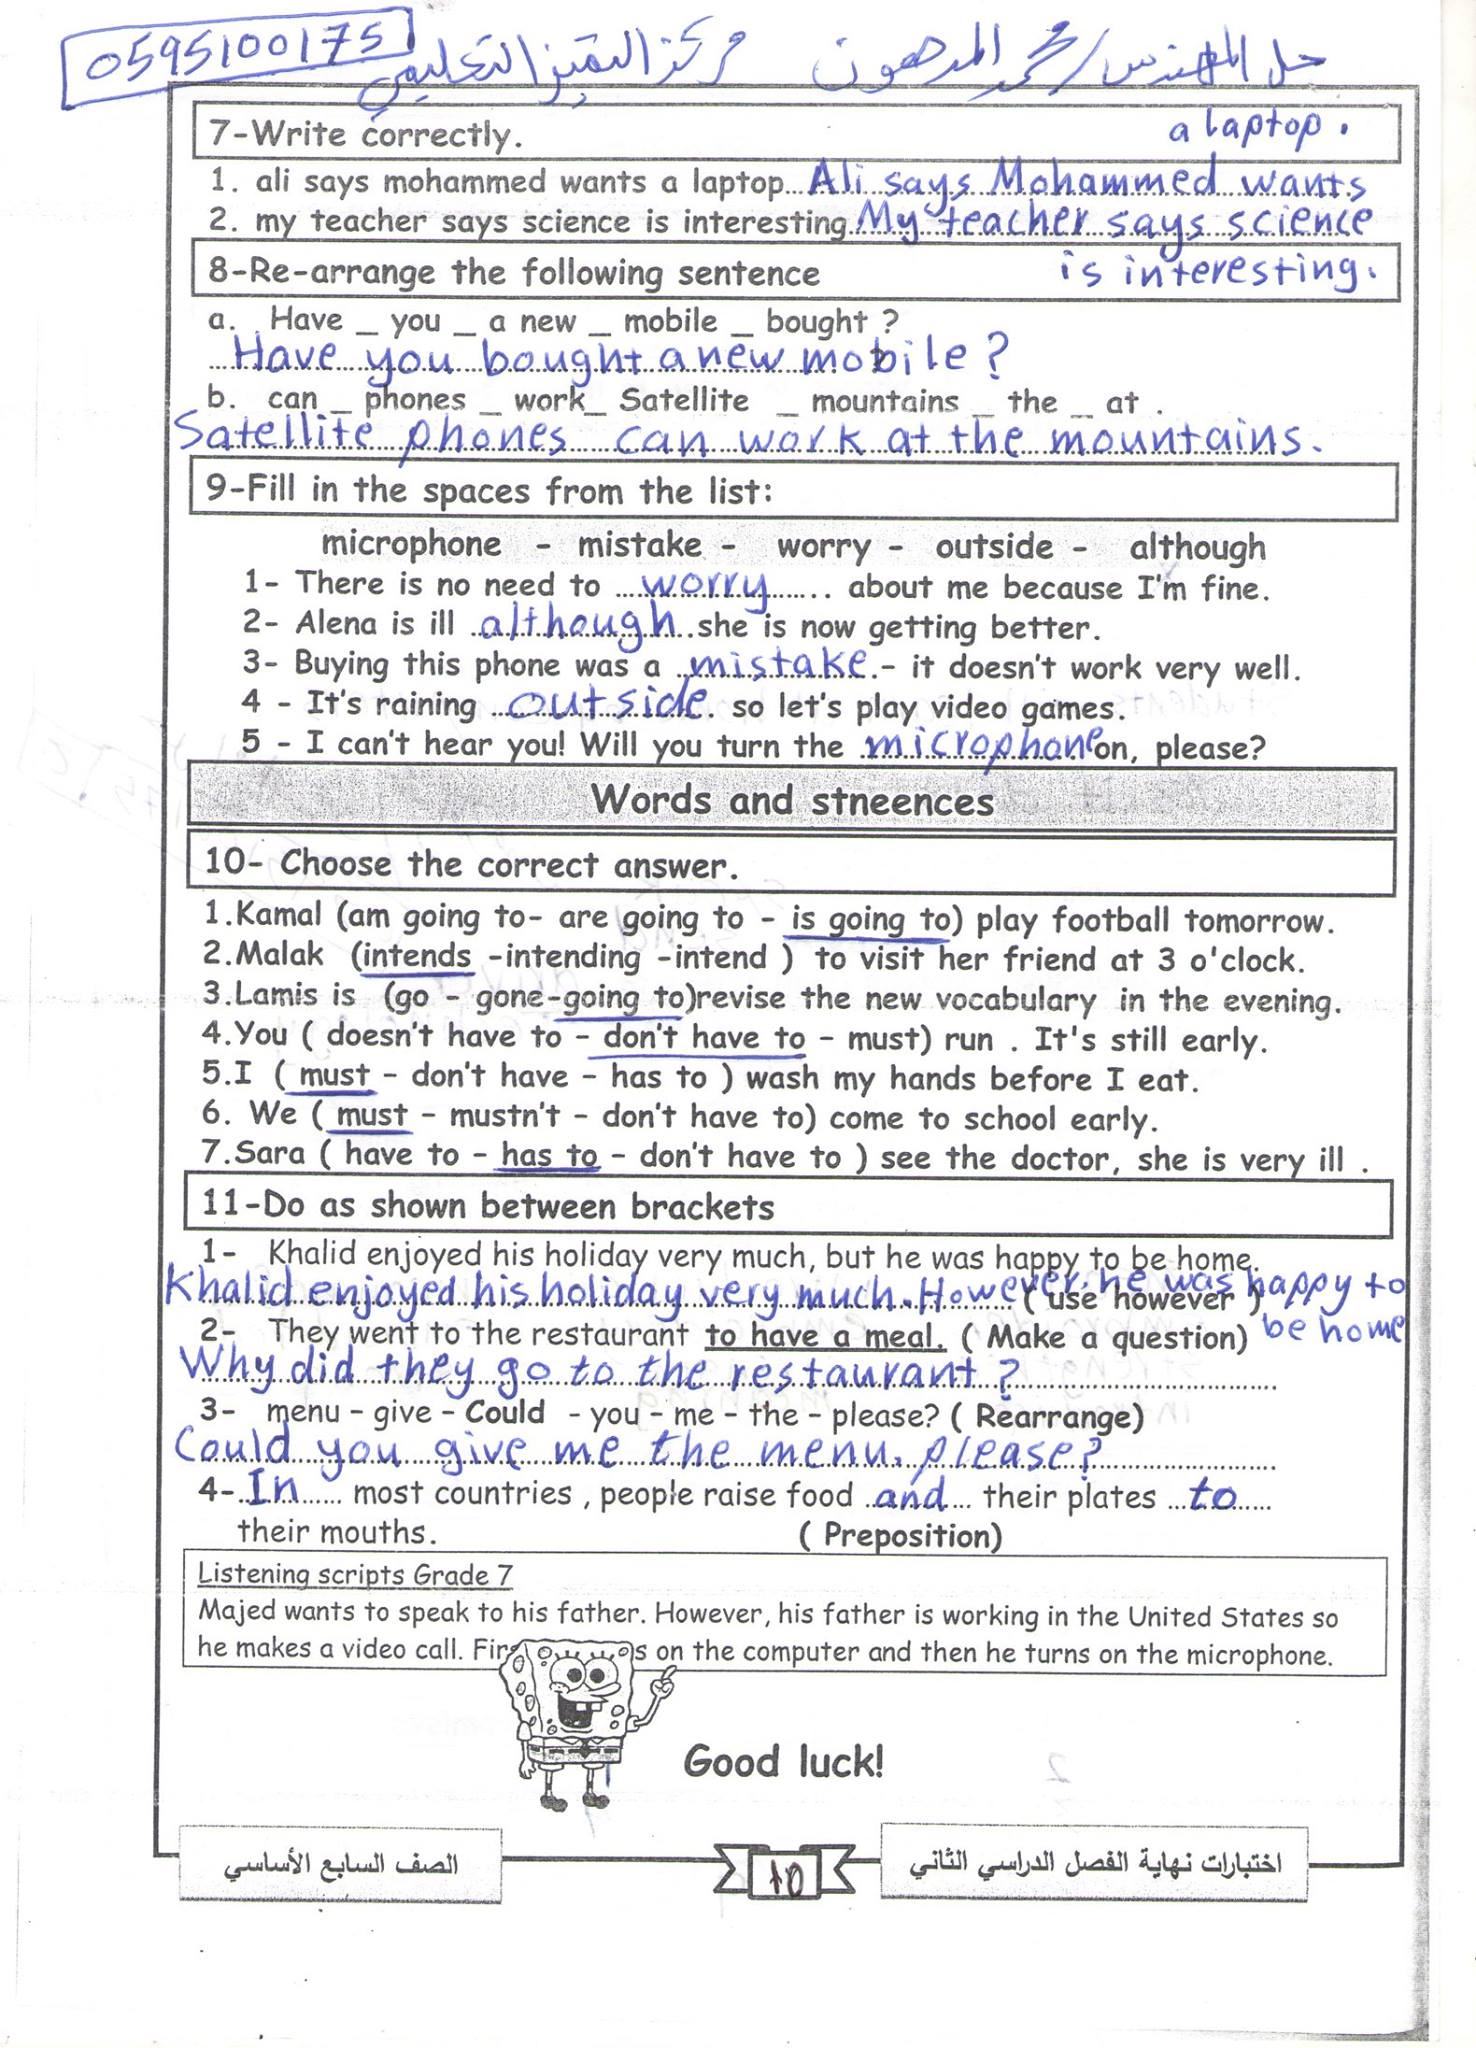 حل المهندس/محمد المدهون مركز التميز التعليمي 0595100175
7-Write correctly. a laptop.
1. ali says mohammed wants a laptop...Ali says Mohammed wants
2. my teacher says science is interesting.My teacher says science
8-Re-arrange the following sentence is interesting.
a. Have _ you _ a new _ mobile _ bought ?
Have you bought a new mobile?
b. can _ phones _ work_ Satellite _ mountains _ the _ at .
Satellite phones can work at the mountains.
9-Fill in the spaces from the list:
microphone - mistake - worry - outside - although
1- There is no need to ...worry...... about me because I'm fine.
2- Alena is ill .although..she is now getting better.
3- Buying this phone was a .mistake.- it doesn't work very well.
4 - It's raining ..outside. so let's play video games.
5 - I can't hear you! Will you turn the .microphone on, please?
Words and stneences
10- Choose the correct answer.
1.Kamal (am going to- are going to - is going to) play football tomorrow.
2.Malak (intends -intending -intend ) to visit her friend at 3 o'clock.
3.Lamis is (go - gone-going to)revise the new vocabulary in the evening.
4.You ( doesn't have to - don't have to - must) run . It's still early.
5.I ( must - don't have - has to ) wash my hands before I eat.
6. We ( must - mustn't - don't have to) come to school early.
7.Sara ( have to - has to - don't have to ) see the doctor, she is very ill .
11-Do as shown between brackets
1- Khalid enjoyed his holiday very much, but he was happy to be home.
Khalid enjoyed his holiday very much. However, he was happy to ( use however )
2- They went to the restaurant to have a meal. ( Make a question) be home
Why did they go to the restaurant ?
3- menu - give - Could - you - me - the - please? ( Rearrange)
Could you give me the menu, please?
4-.In..... most countries , people raise food .and... their plates ...to......
their mouths. ( Preposition)
Listening scripts Grade 7
Majed wants to speak to his father. However, his father is working in the United States so
he makes a video call. Firs s on the computer and then he turns on the microphone.
Good luck!
اختبارات نهاية الفصل الدراسي الثاني 10 الصف السابع الأساسي